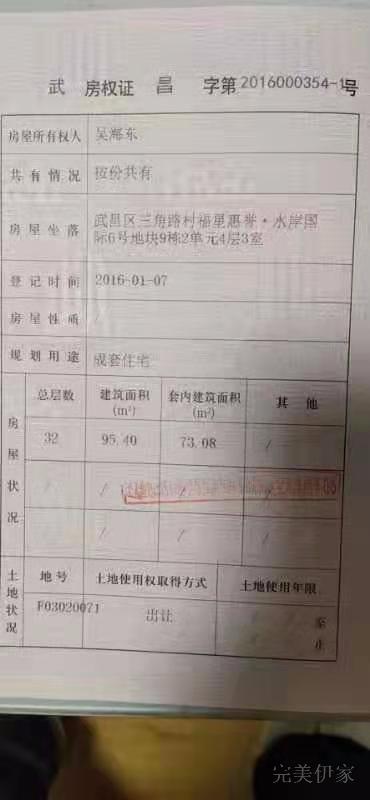 武 房权证 昌 字第2016000354-1号
房屋所有权人 吴海东
共有情况 按份共有
房屋坐落 武昌区三角路村福星惠誉·水岸国
际6号地块9栋2单元4层3室
登记时间 2016-01-07
房屋性质
规划用途 成套住宅
房屋状况
总层数 建筑面积 套内建筑面积 其他
(m²) (m²)
32 95.40 73.08 /
/ / / /
/ / / /
土地状况
地号 土地使用权取得方式 土地使用年限
F03020071 出让 至
止
完美伊家